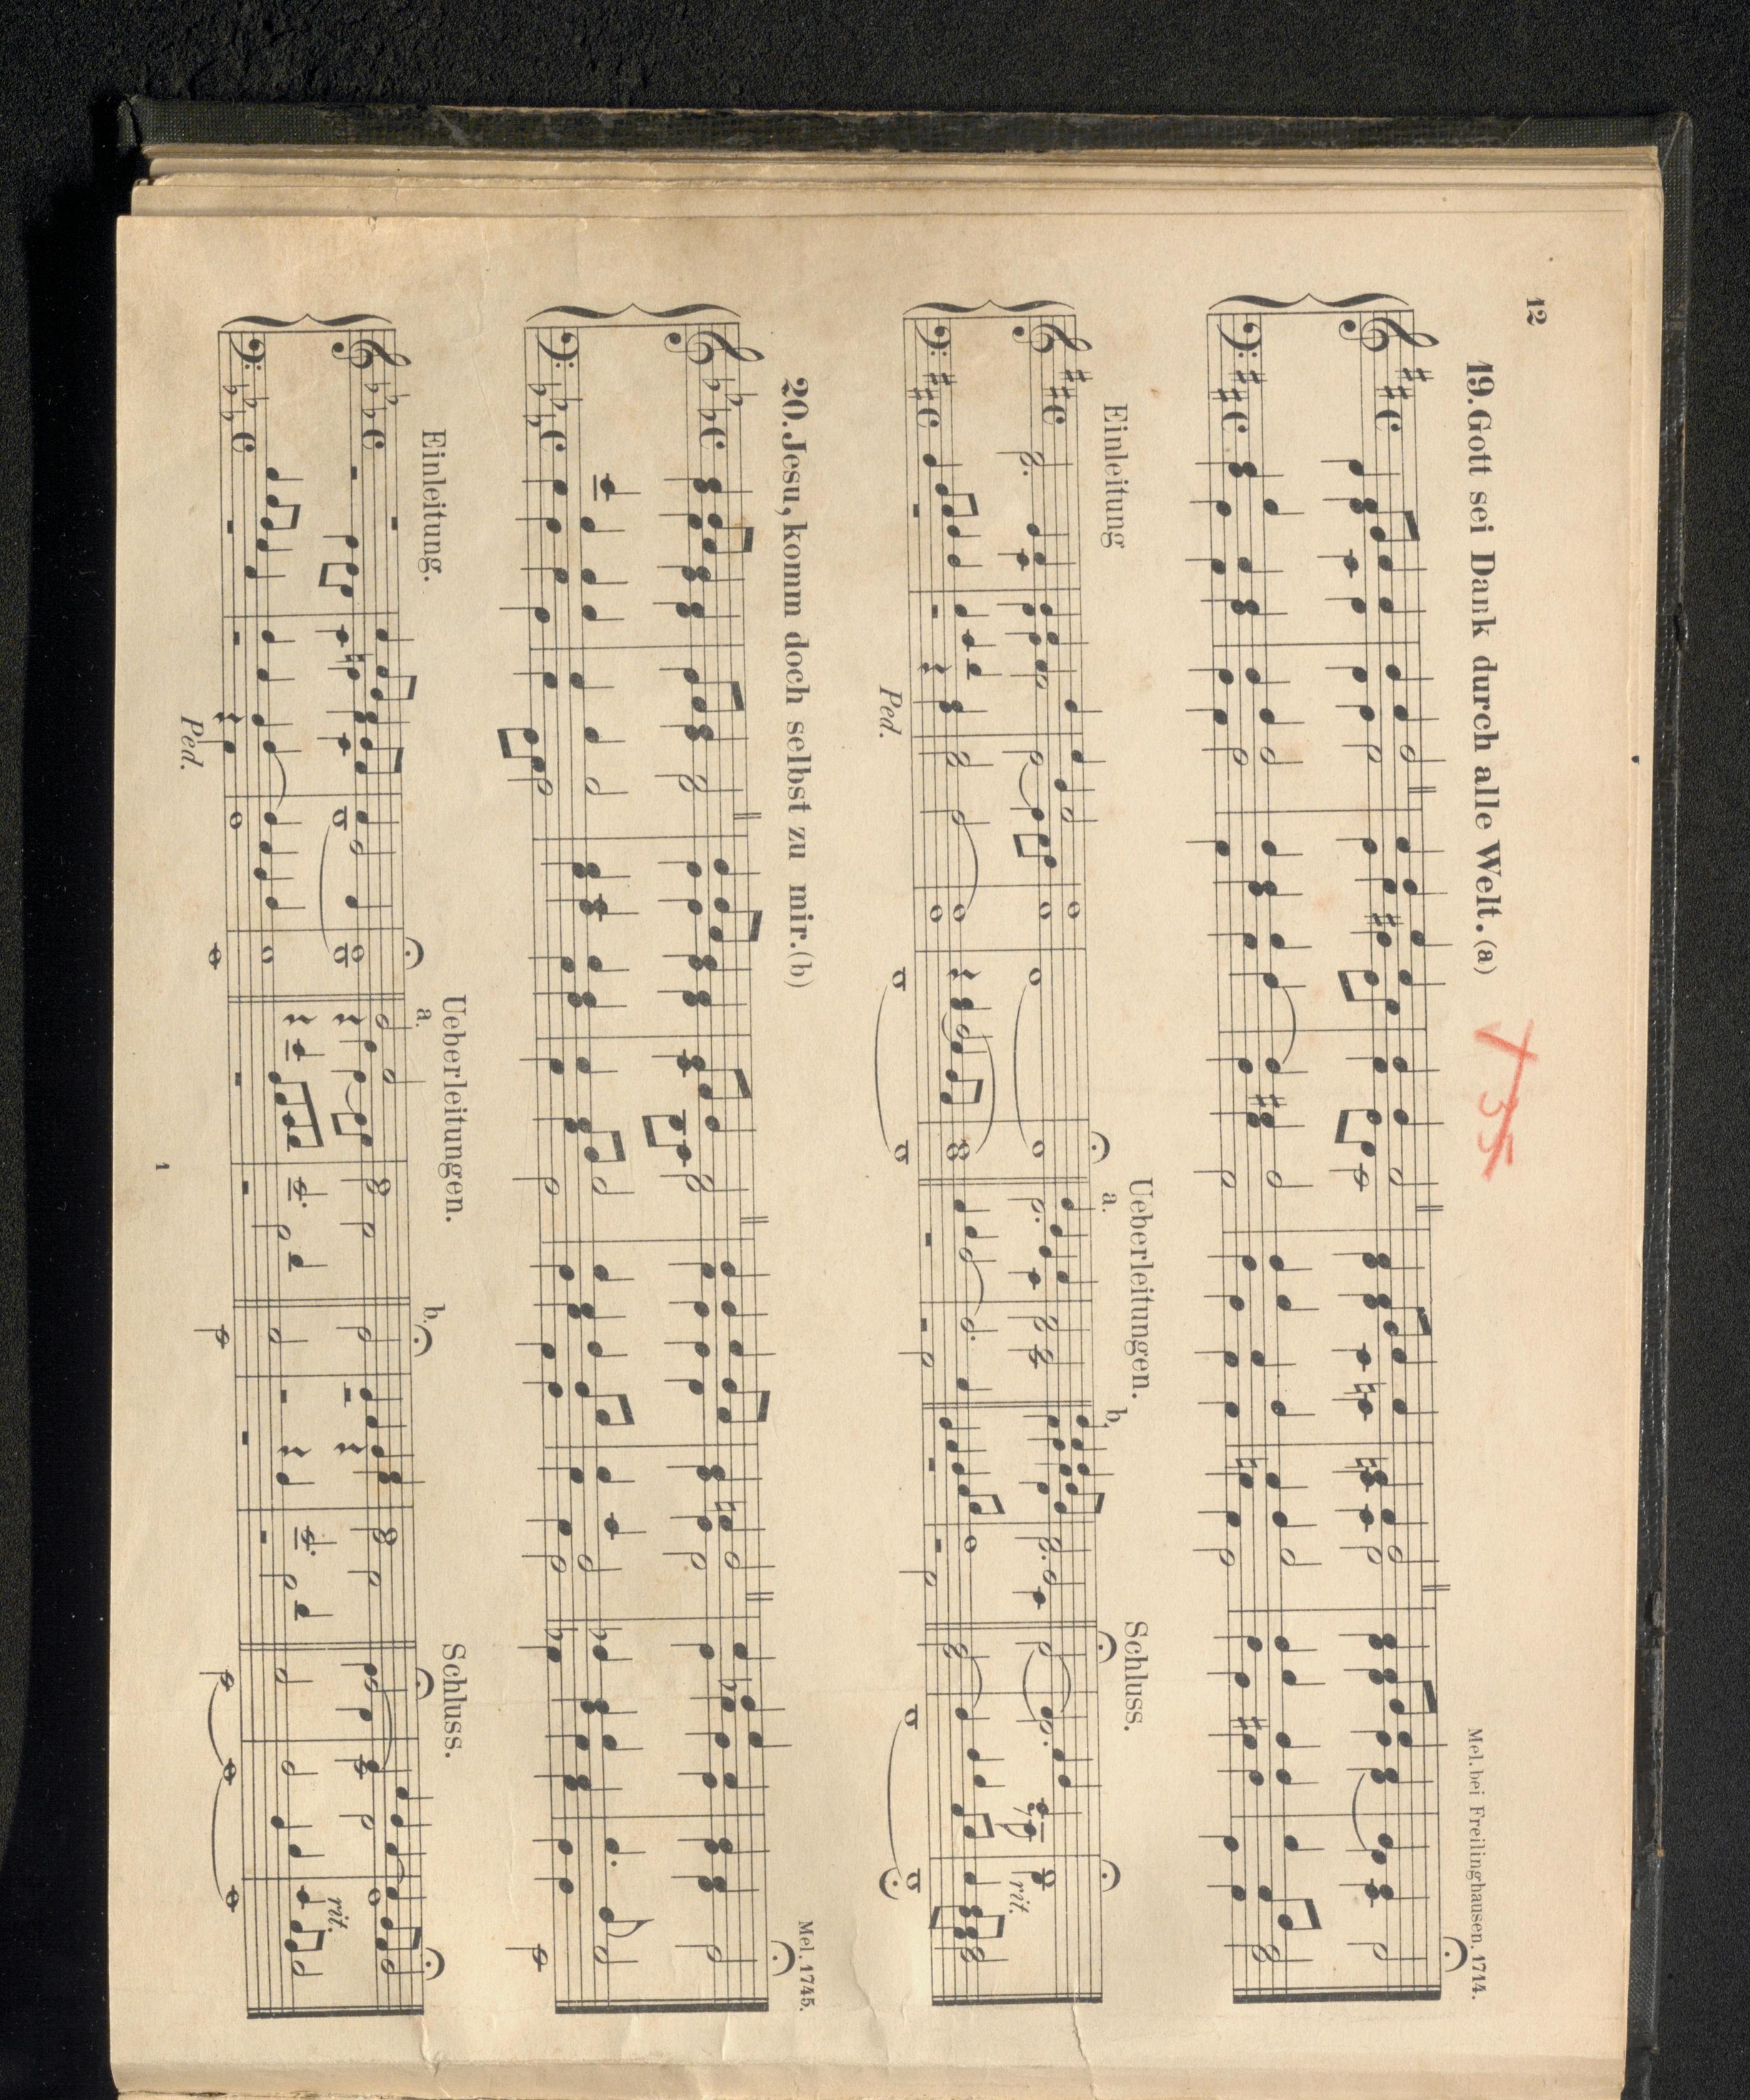 12
19. Gott sei Dank durch alle Welt. (a)
Mel. bei Freilinghausen. 1714.
Einleitung
Ueberleitungen.
Schluss.
a.
b.
Ped.
rit.
20. Jesu, komm doch selbst zu mir. (b)
Mel. 1745.
Einleitung.
Ueberleitungen.
Schluss.
a.
b.
Ped.
rit.
1